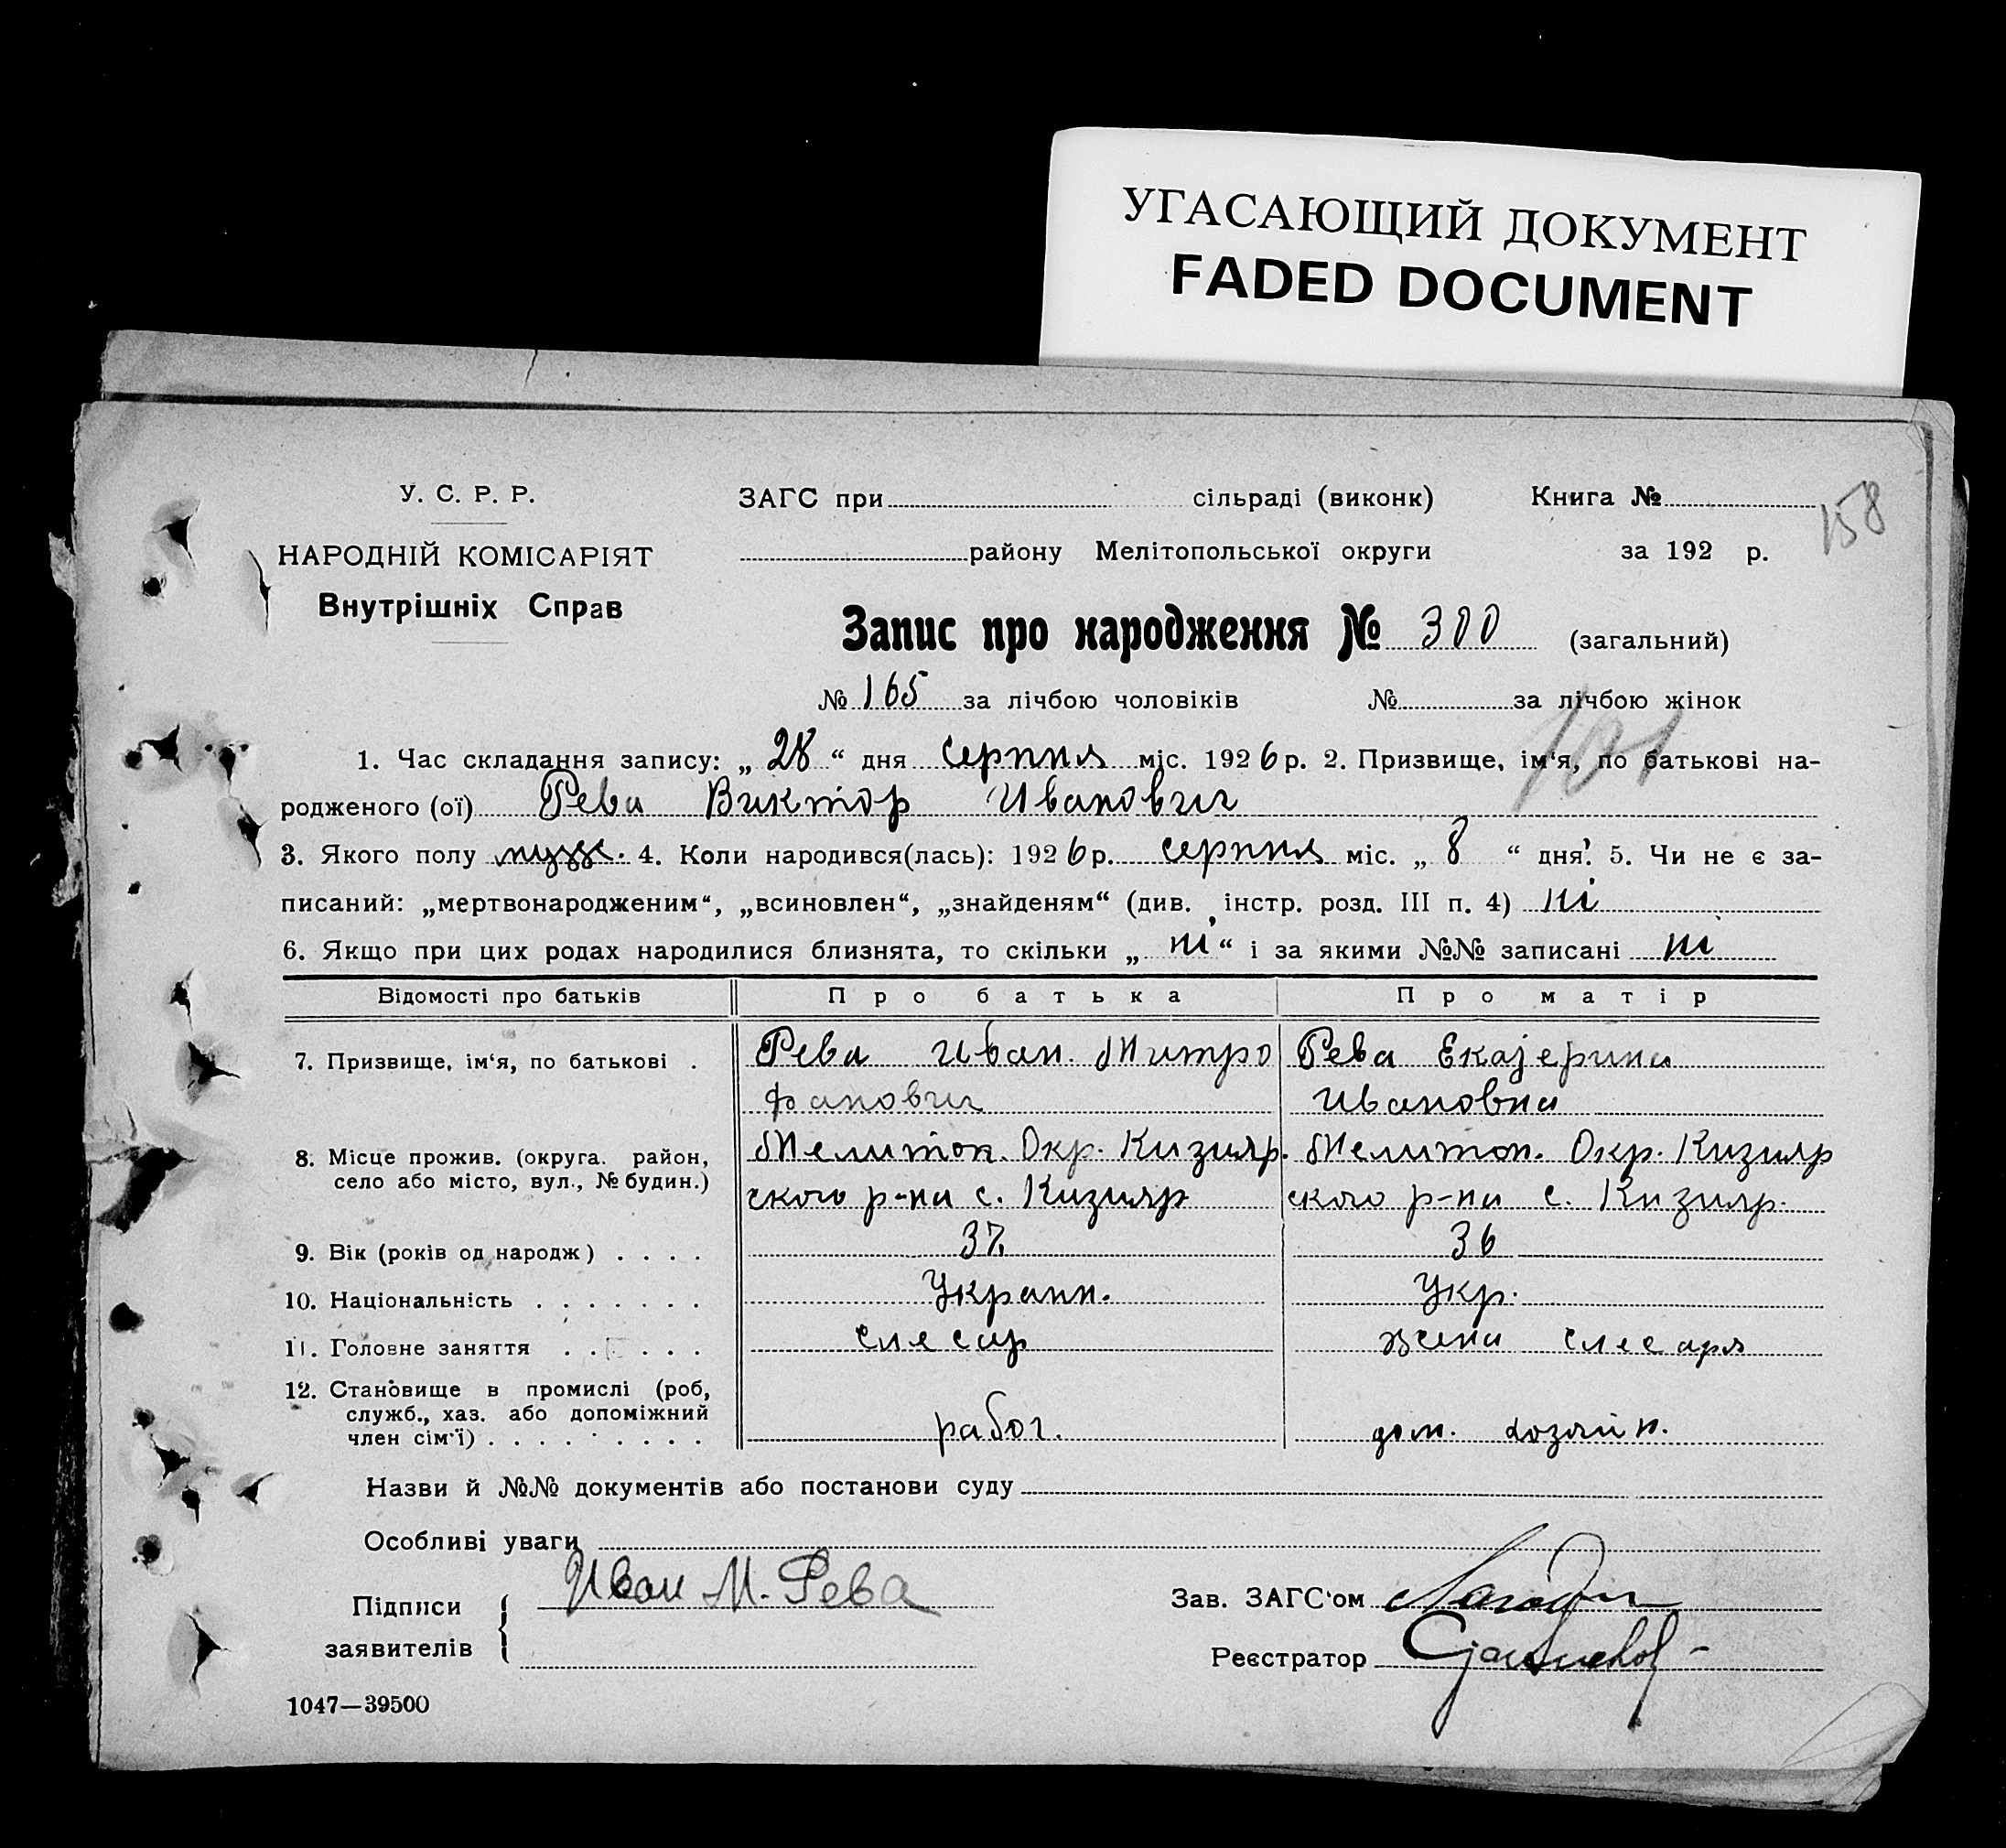 УГАСАЮЩИЙ ДОКУМЕНТ
FADED DOCUMENT
158
У. С. Р. Р.
ЗАГС при сільраді (виконк) Книга №
НАРОДНІЙ КОМІСАРІЯТ
району Мелітопольської округи за 192 р.
Внутрішніх Справ
Запис про народження № 300 (загальний)
№ 165 за лічбою чоловіків № за лічбою жінок
1. Час складання запису: „ 28 “ дня серпня міс. 1926 р. 2. Призвище, ім‘я, по батькові на-
родженого (ої) Рева Виктор Иванович
3. Якого полу мужс. 4. Коли народився(лась): 1926 р. серпня міс. „ 8 “ дня. 5. Чи не є за-
писаний: „мертвонародженим“, „всиновлен“, „знайденям“ (див. інстр. розд. III п. 4) ні
6. Якщо при цих родах народилися близнята, то скільки „ ні “ і за якими №№ записані ні
Відомості про батьків Про батька Про матір
7. Призвище, ім‘я, по батькові . Рева Иван Митро Рева Екатерина
фанович Ивановна
8. Місце прожив. (округа. район, село або місто, вул., № будин.) Мелитоп. Окр. Кизияр. Мелитоп. Окр. Кизияр
ского р-на с. Кизияр ского р-на с. Кизияр.
9. Вік (років од народж) . . . . 37 36
10. Національність . . . . . . . Украин. Укр.
11. Головне заняття . . . . . . слесар жена слесаря
12. Становище в промислі (роб,
служб., хаз. або допоміжний
член сім‘ї) . . . . . . . . . работ. дом. хозяйн.
Назви й №№ документів або постанови суду
Особливі уваги
Підписи заявителів Иван М. Рева
Зав. ЗАГС‘ом
Реєстратор
1047—39500